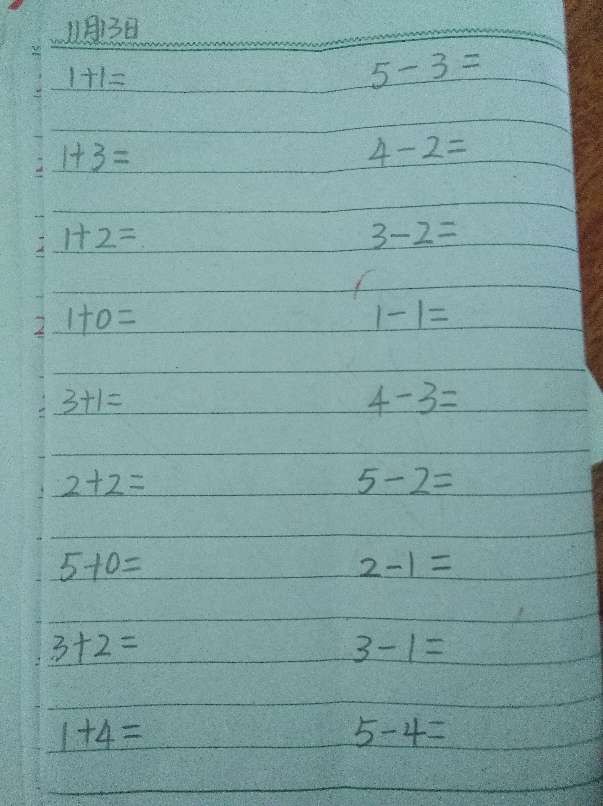 11月13日
1+1= 5-3=
1+3= 4-2=
1+2= 3-2=
1+0= 1-1=
3+1= 4-3=
2+2= 5-2=
5+0= 2-1=
3+2= 3-1=
1+4= 5-4=